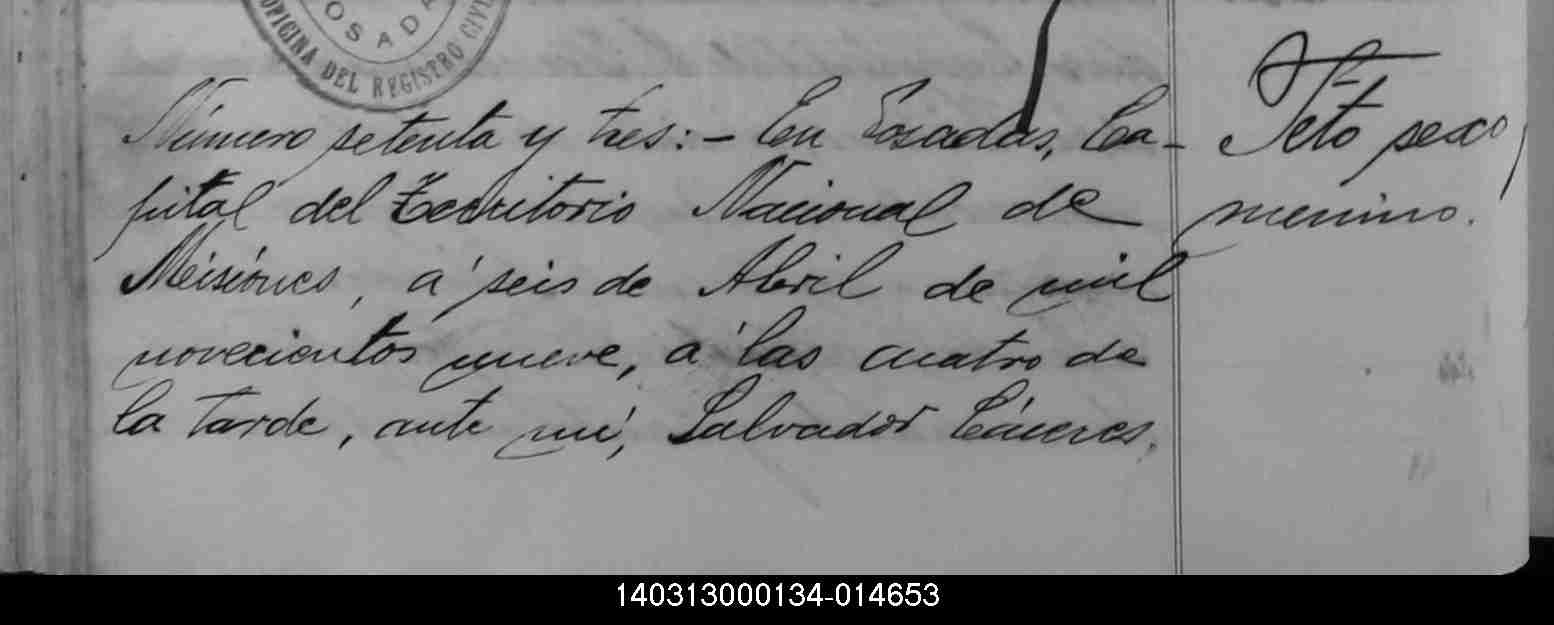 OSADA
OFICINA DEL REGISTRO CIVIL
Número setenta y tres:- En Posadas, Ca-
pital del Territorio Nacional de
Meisiones, á seis de Abril de mil
novecientos nueve, á las cuatro de
la tarde, ante mí, Salvador Cáceres,
Feto sexo
menino.
140313000134-014653